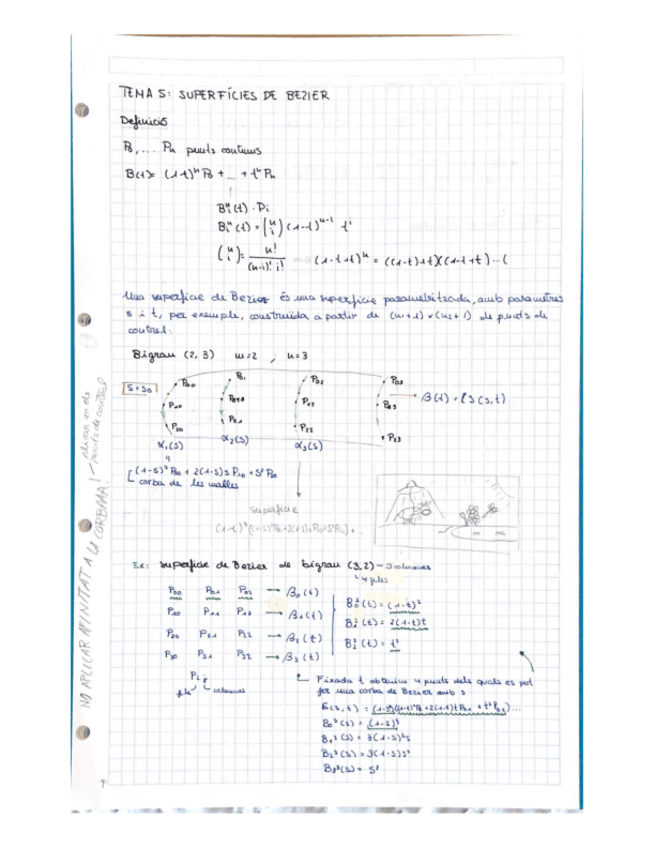 TEMA 5: SUPERFÍCIES DE BEZIER
Definició
P₀, ... Pn punts
B(t) = (1-t)ⁿP₀ + ... + tⁿPn
Bᵢⁿ(t) · Pᵢ
Bᵢⁿ(t) = (n i) (1-t)ⁿ⁻ⁱ tⁱ
(n i) = n! / (n-i)! i!
(1-t+t)ⁿ = ((1-t)+t)((1-t+t) ... (
Una superficie de Bezier és una superfície parametritzada, amb paràmetres
s i t, per exemple, construïda a partir de (m+1) x (n+1) de punts de
control:
Bigrau (2, 3) m=2 , n=3
S=S₀
P₀₀ P₀₁ P₀₂ P₀₃
P₁₀ P₁₂
P₂₀ P₂₁ P₂₂ P₂₃
α₁(s) α₂(s) α₃(s)
(1-s)²P₀₀ + 2(1-s)s P₁₀ + s²P₂₀
corba de les malles
superfície
NO APLICAR AFINITAT A LA CORBA!
Ex: superfície de Bezier de bigrau (3,2) - 3 columnes
4 files
P₀₀ P₀₁ P₀₂ → β₀(t)
P₁₀ P₁₁ P₁₂ → β₁(t)
P₂₀ P₂₁ P₂₂ → β₂(t)
P₃₀ P₃₁ P₃₂ → β₃(t)
B₀²(t) = (1-t)²
B₁²(t) = 2(1-t)t
B₂²(t) = t²
fila columnes
Fixada t obtenim 4 punts dels quals es pot
fer una corba de Bezier amb s
B₀³(s) = (1-s)³
B₁³(s) = 3(1-s)²s
B₂³(s) = 3(1-s)s²
B₃³(s) = s³